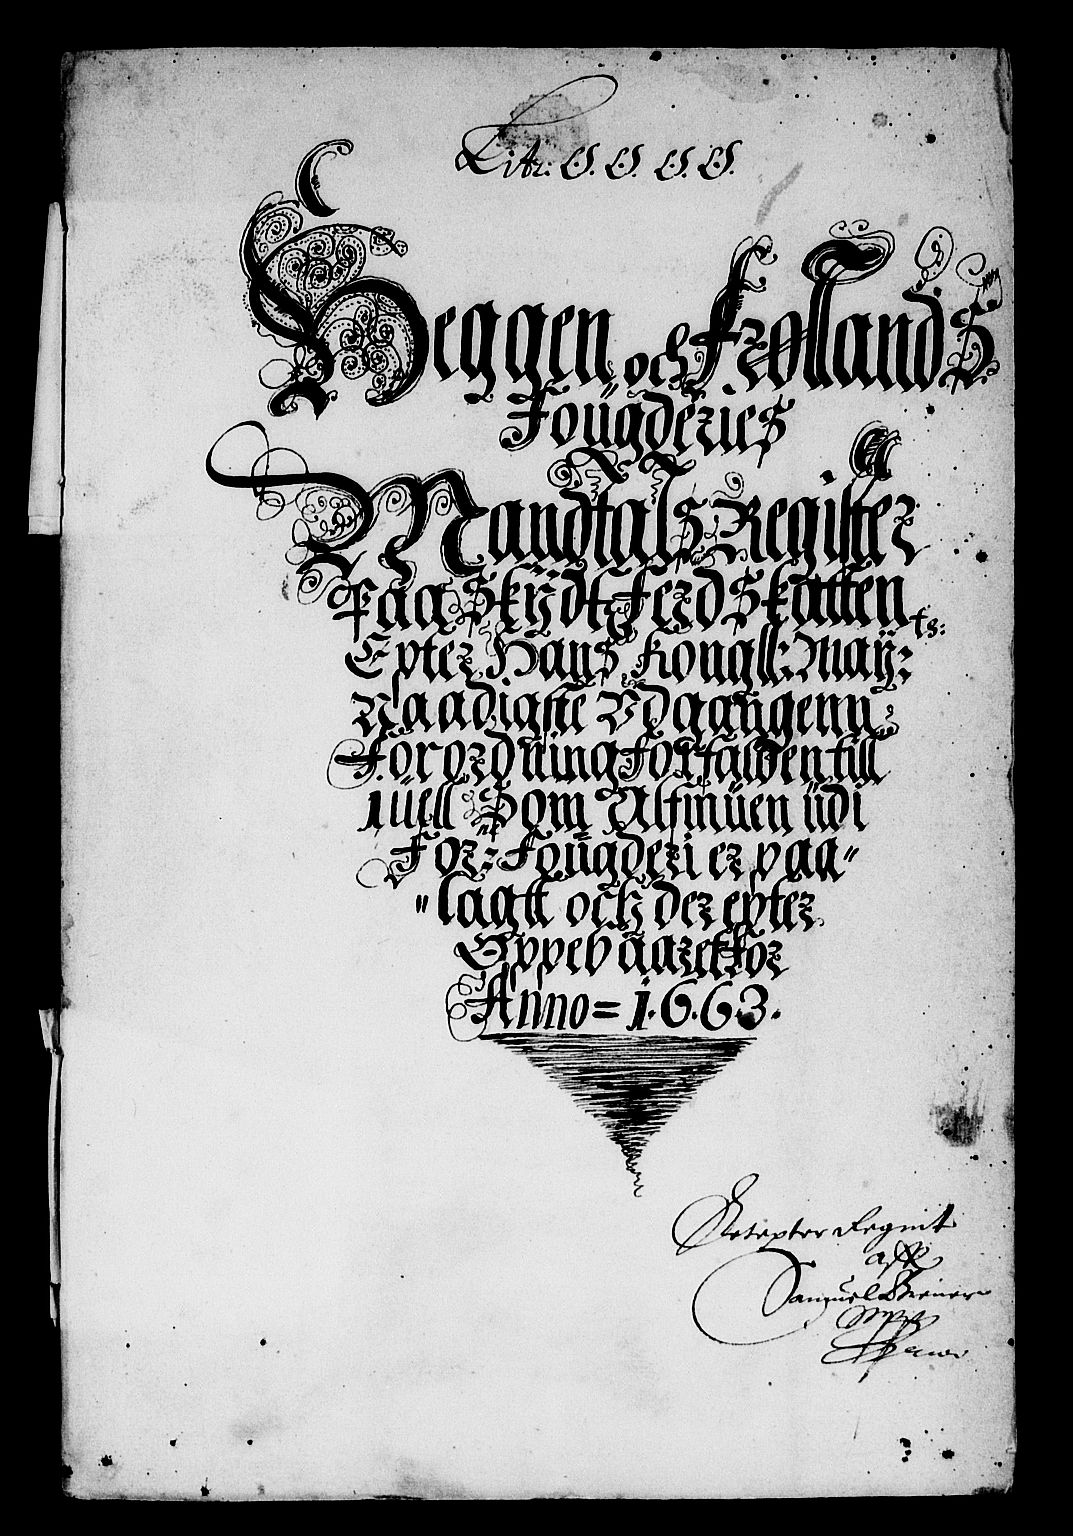 Litr: O. O. O. O.
Heggen och Frøllands
Foügderies
Mandtals Register
Paa Skÿdtzferd Skatten
Epter Hans Kongll: Maÿ:
Naadigste Vdgangenn
Forordning forfalden till
Iüell Som Almüen üdi
For:ne Foügderi er paa
lagtt och der epter
Oppebaaret for
Anno = 1.6.6.3.
aff
Samuel